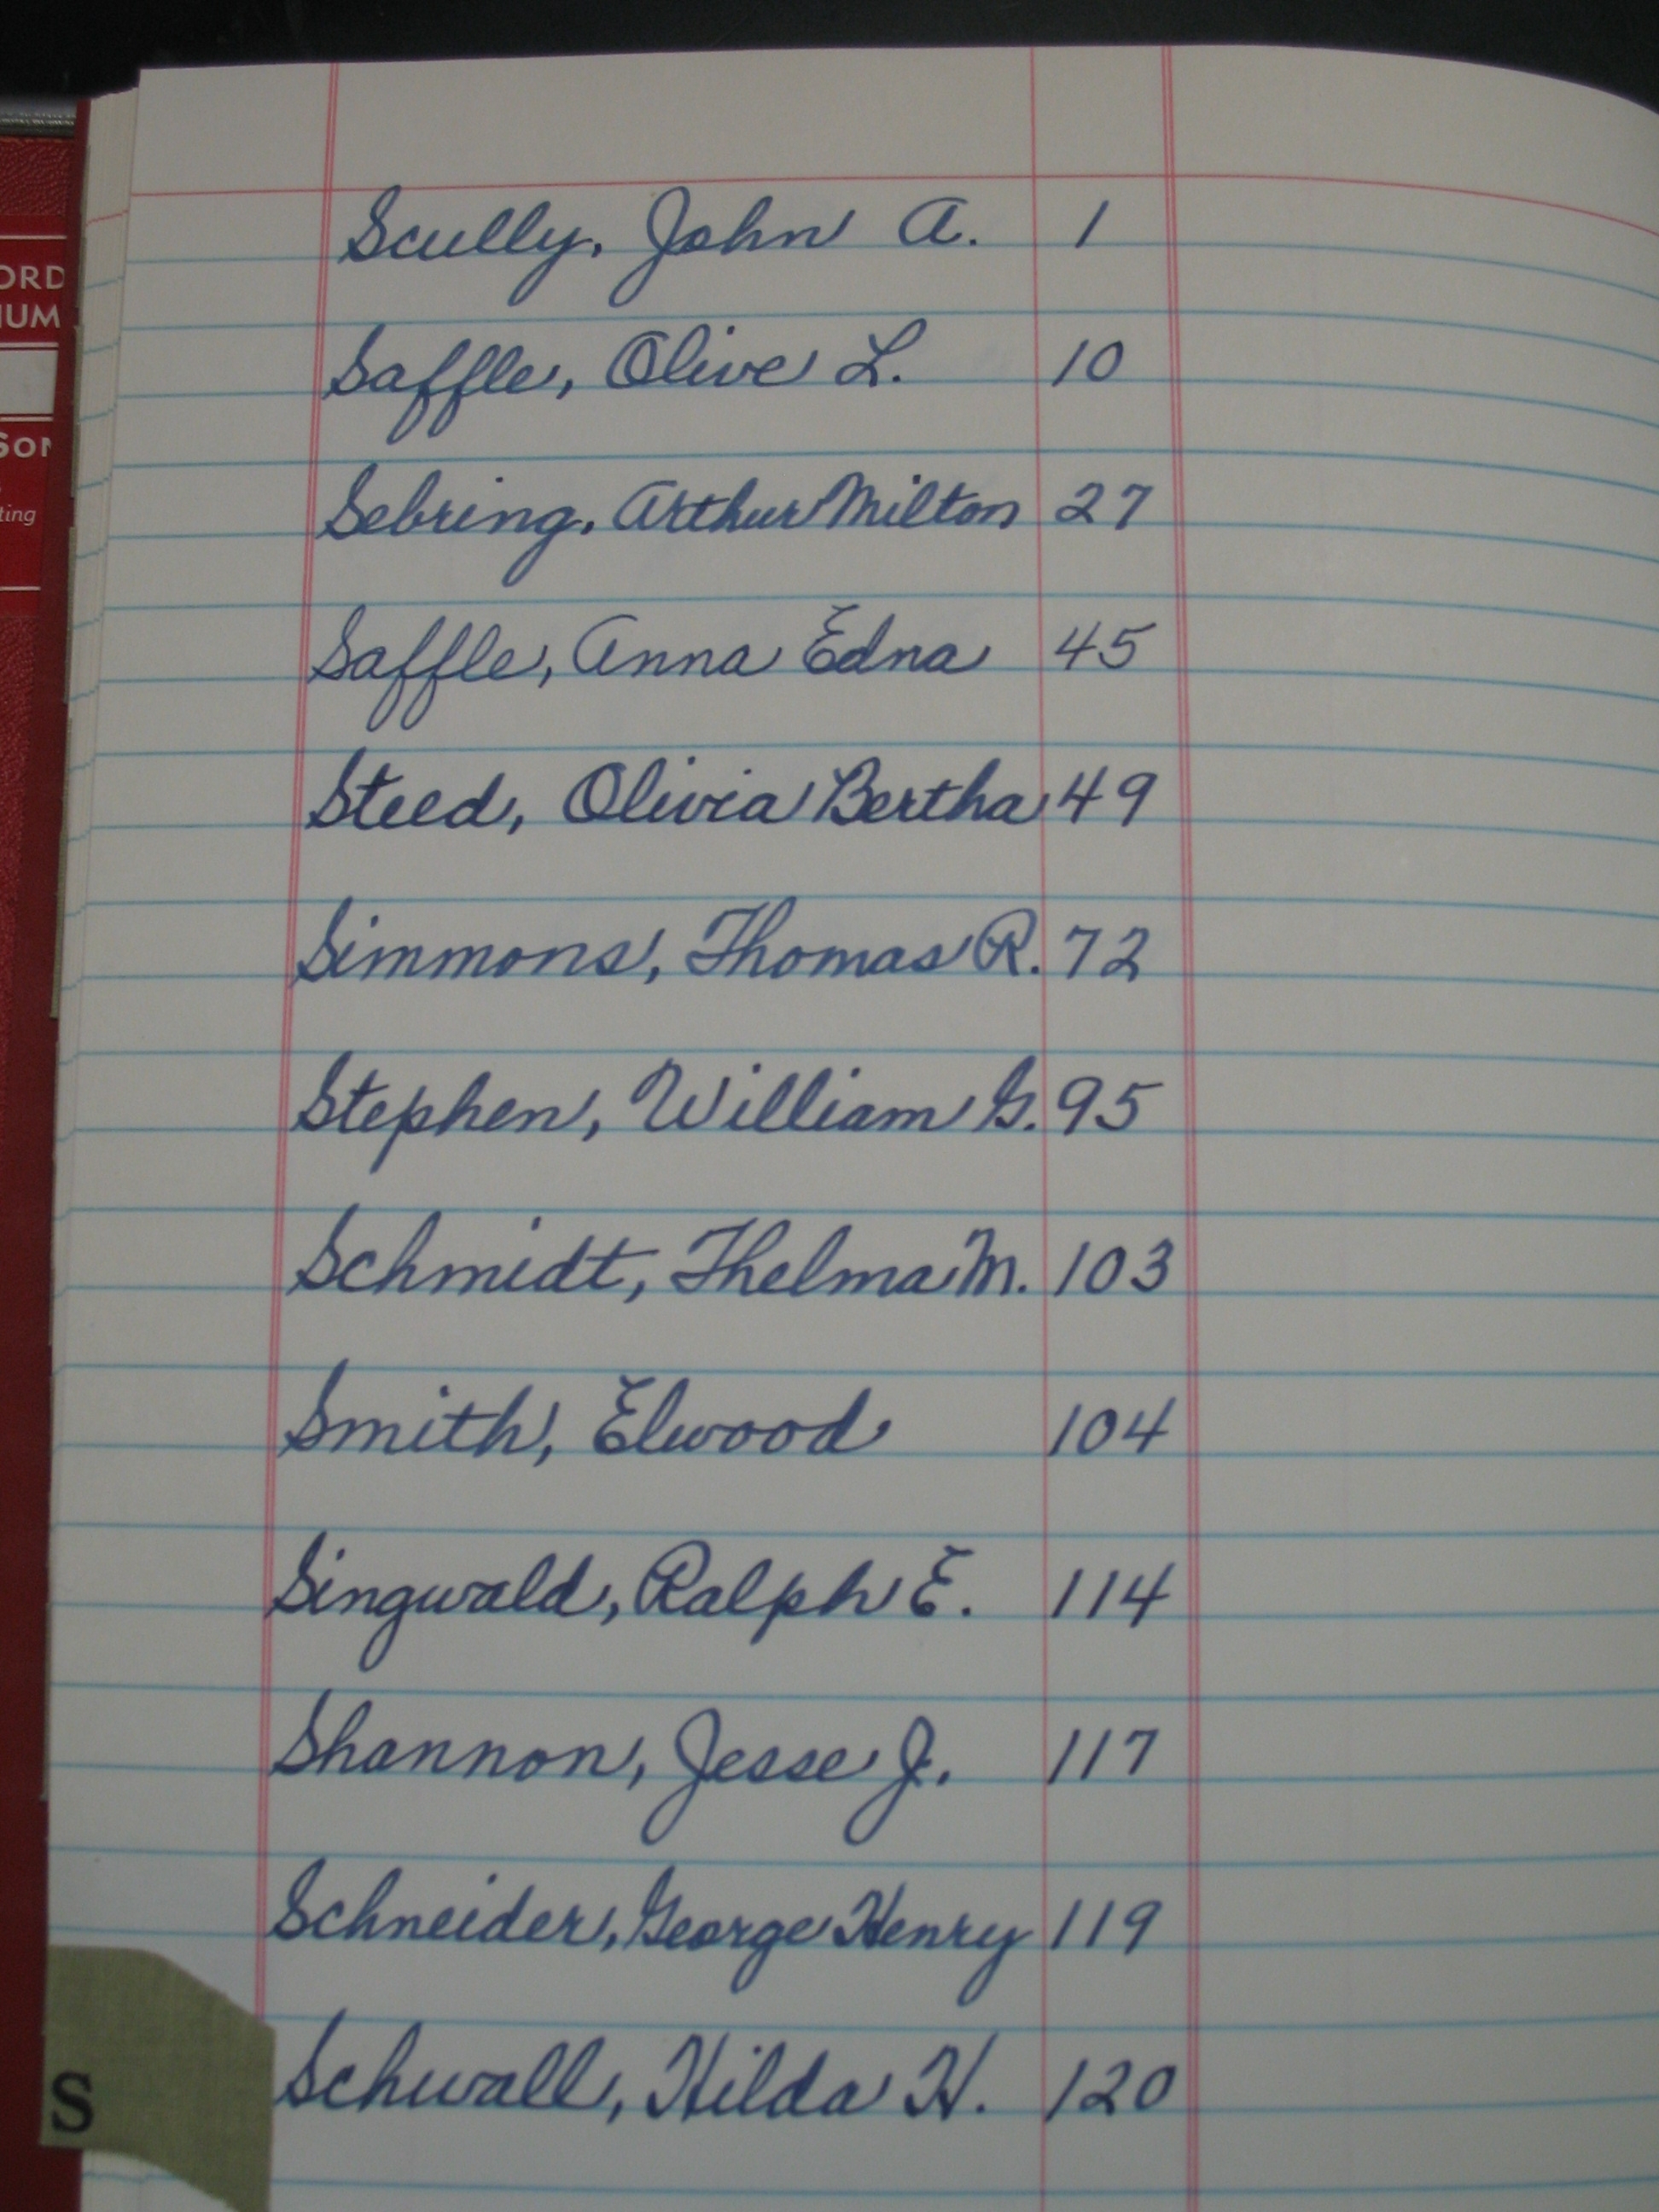 Scully, John A. 1
Saffle, Olive L. 10
Sebring, Arthur Milton 27
Saffle, Anna Edna 45
Steed, Olivia Bertha 49
Simmons, Thomas R. 72
Stephen, William G. 95
Schmidt, Thelma M. 103
Smith, Elwood 104
Singwald, Ralph E. 114
Shannon, Jesse J. 117
Schneider, George Henry 119
Schwall, Hilda H. 120
S
ORD
UM
SON
ting